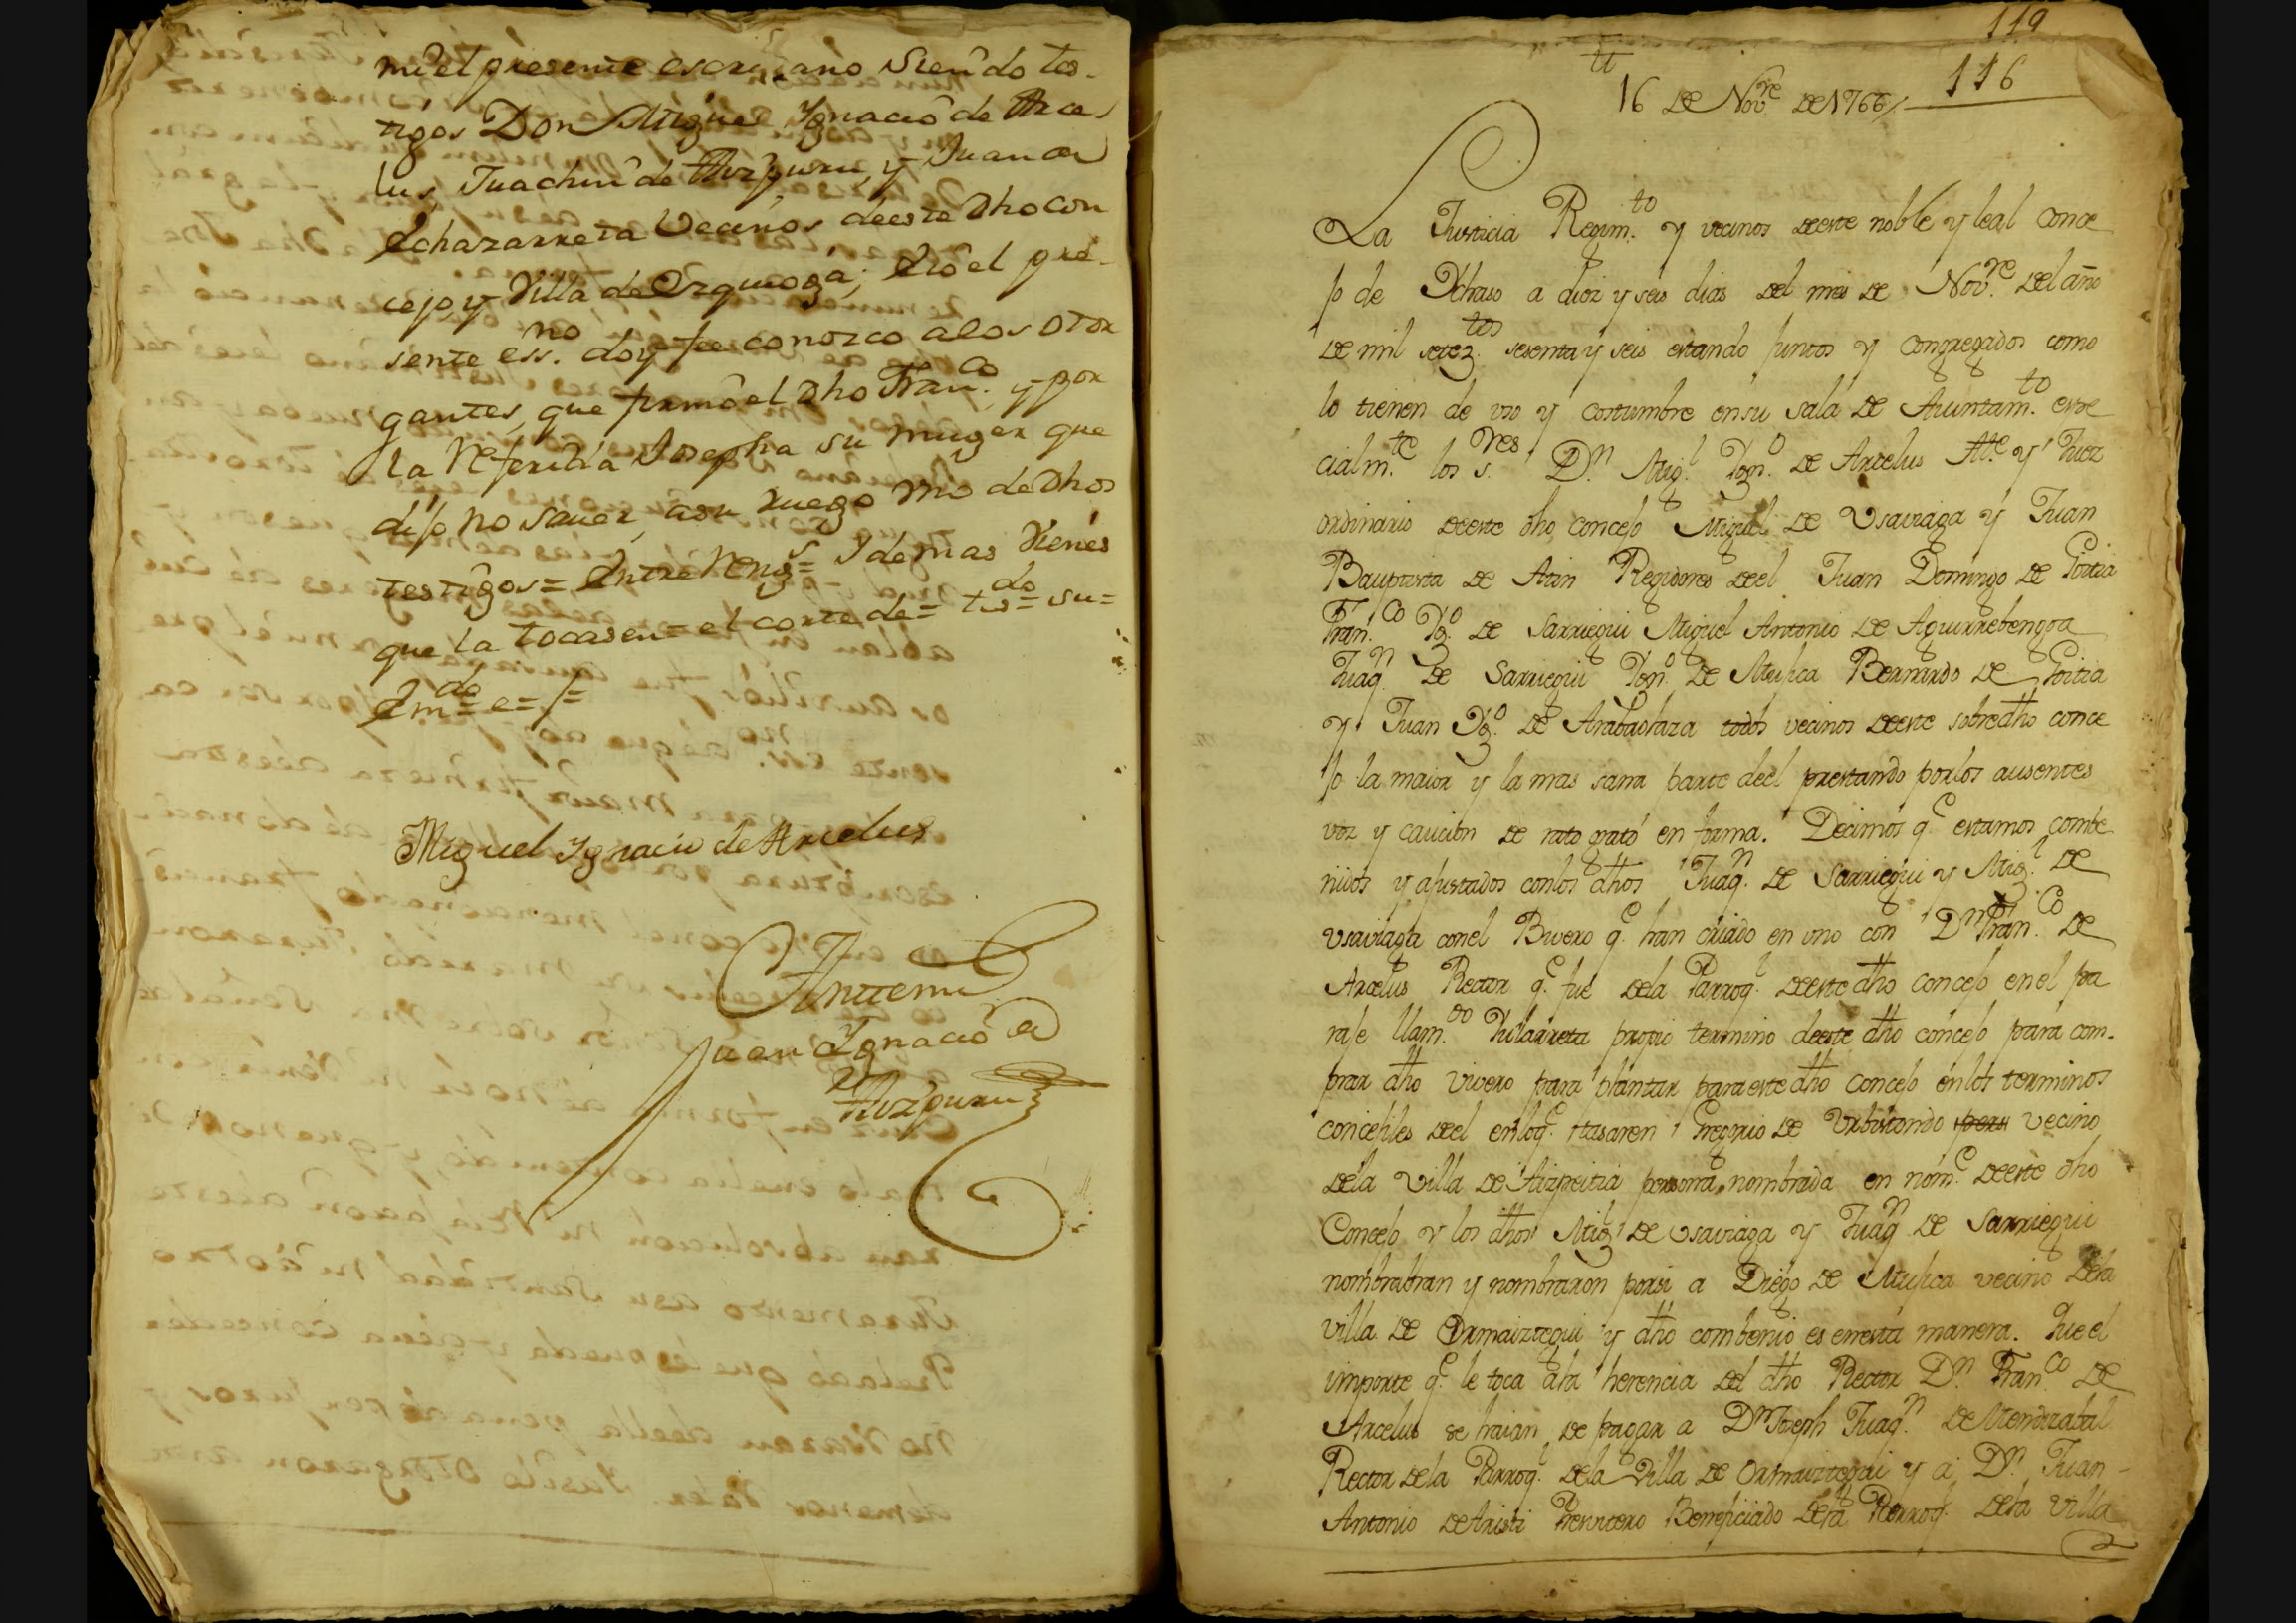 mi el presente escrivano siendo tes-
tigos Don Miguel Ygnacio de Arce
lus, Juachin de Aizpuru, y Juan de
Echazarreta Vecinos de este dho con
cejo, y Villa de Ezquioga; E Yo el pre-
sente ess.no doy fee conozco a los otor
gantes, que firmó el dho Fran.co y por
la referida Josepha su muger que
dijo no saver, a su ruego vno de dhos
testigos= Entre Reng.s= Idemas Vienes
que la tocasen= el corte de= t.do= su=
Em.do= e= f=
Miguel Ygnacio de Arcelus
Antemi
Juan Ygnacio de
Aizpuru
119
116
tt
16 de Nov.re de 1766
La Justicia Regim.to y vecinos de este noble y leal conce
jo de Ychaso a diez y seis dias del mes de Nov.re del año
de mil setez.tos sesenta y seis estando juntos y congregados como
lo tienen de vso y costumbre en su sala de Aiuntam.to espe
cialm.te los s.res D.n Mig.l Ygn.o de Arcelus Al.e y Juez
ordinario de este dho concejo Miguel de Vsaviaga y Juan
Bauptista de Atin Regidores de el Juan Domingo de Goitia
Fran.co Yg.o de Sarriegui Miguel Antonio de Aguirrebengoa
Juaq.n de Sarriegui Ygn.o de Mujica Bernardo de Goitia
y Juan Yg.o de Arabaolaza todos vecinos de este sobredho conce
jo la maior y la mas sana parte de el prestando por los ausentes
voz y caucion de rato grato en forma. Decimos q.e estamos combe
nidos y ajustados con los dhos Juaq.n de Sarriegui y Mig.l de
Vsaviaga con el Bivero q.e han criado en vno con D.n Fran.co de
Arcelus Rector q.e fué de la Parroq.l de este dho concejo en el pa
raje llam.do Yulaarreta propio termino de este dho concejo para com-
prar dho vivero para plantar para este dho concejo en los terminos
concejiles de el en lo q.e tasaren Gregorio de Vrbiztondo vecino
de la villa de Aizpeitia persona nombrada en nom.e de este dho
Concejo y los dhos Mig.l de Vsaviaga y Juaq.n de Sarriegui
nombrabran y nombraron por si a Diego de Mujica vecino de la
villa de Ormaiztegui y dho combenio es en esta manera. Que el
importe q.e le toca a la herencia del dho Rector D.n Fran.co de
Arcelus se haian de pagar a D.n Joseph Juaq.n de Mendizabal
Rector de la Parroq.l de la Villa de Ormaiztegui y a D.n Juan-
Antonio de Aristi Presvitero Beneficiado de la Parroq.l de la villa